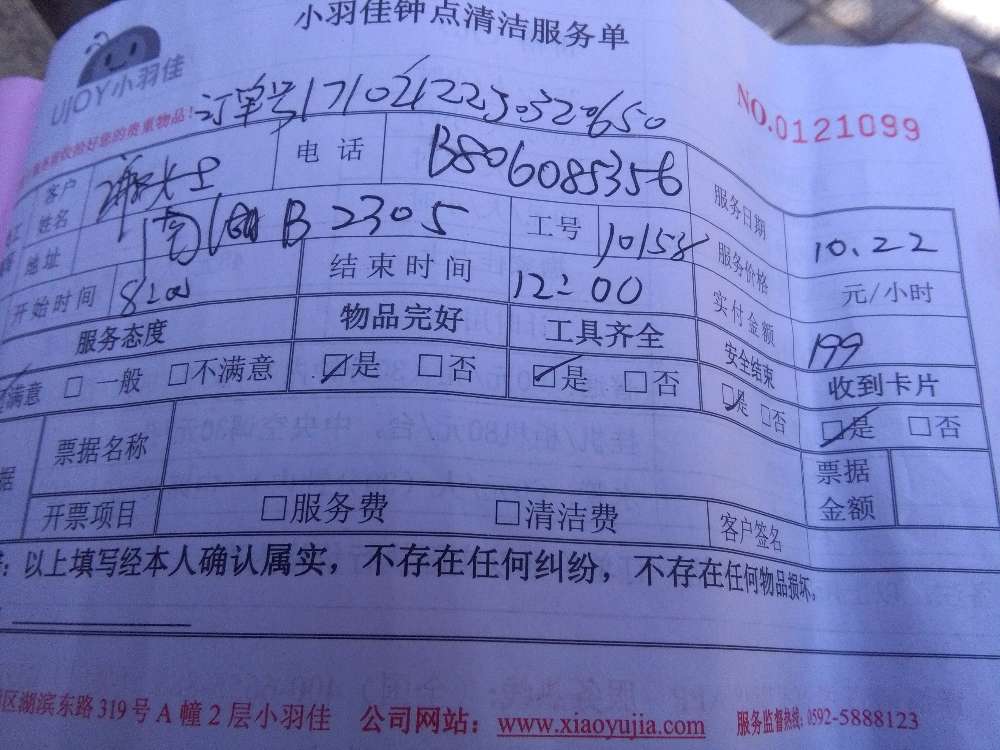 小羽佳钟点清洁服务单
UJOY小羽佳
NO.0121099
收拾好您的贵重物品!
订单号
客户姓名 电话 服务日期 10.22
地址 B 2305 工号 服务价格 元/小时
开始时间 结束时间 12:00 实付金额 199
服务态度 物品完好 工具齐全 安全结束 收到卡片
满意 □ 一般 □不满意 ☑是 □否 ☑是 □否 ☑是 □否 ☑是 □否
票据名称 票据金额
开票项目 □服务费 □清洁费 客户签名
以上填写经本人确认属实，不存在任何纠纷，不存在任何物品损坏。
区湖滨东路319号A幢2层小羽佳 公司网站：www.xiaoyujia.com 服务监督热线：0592-5888123